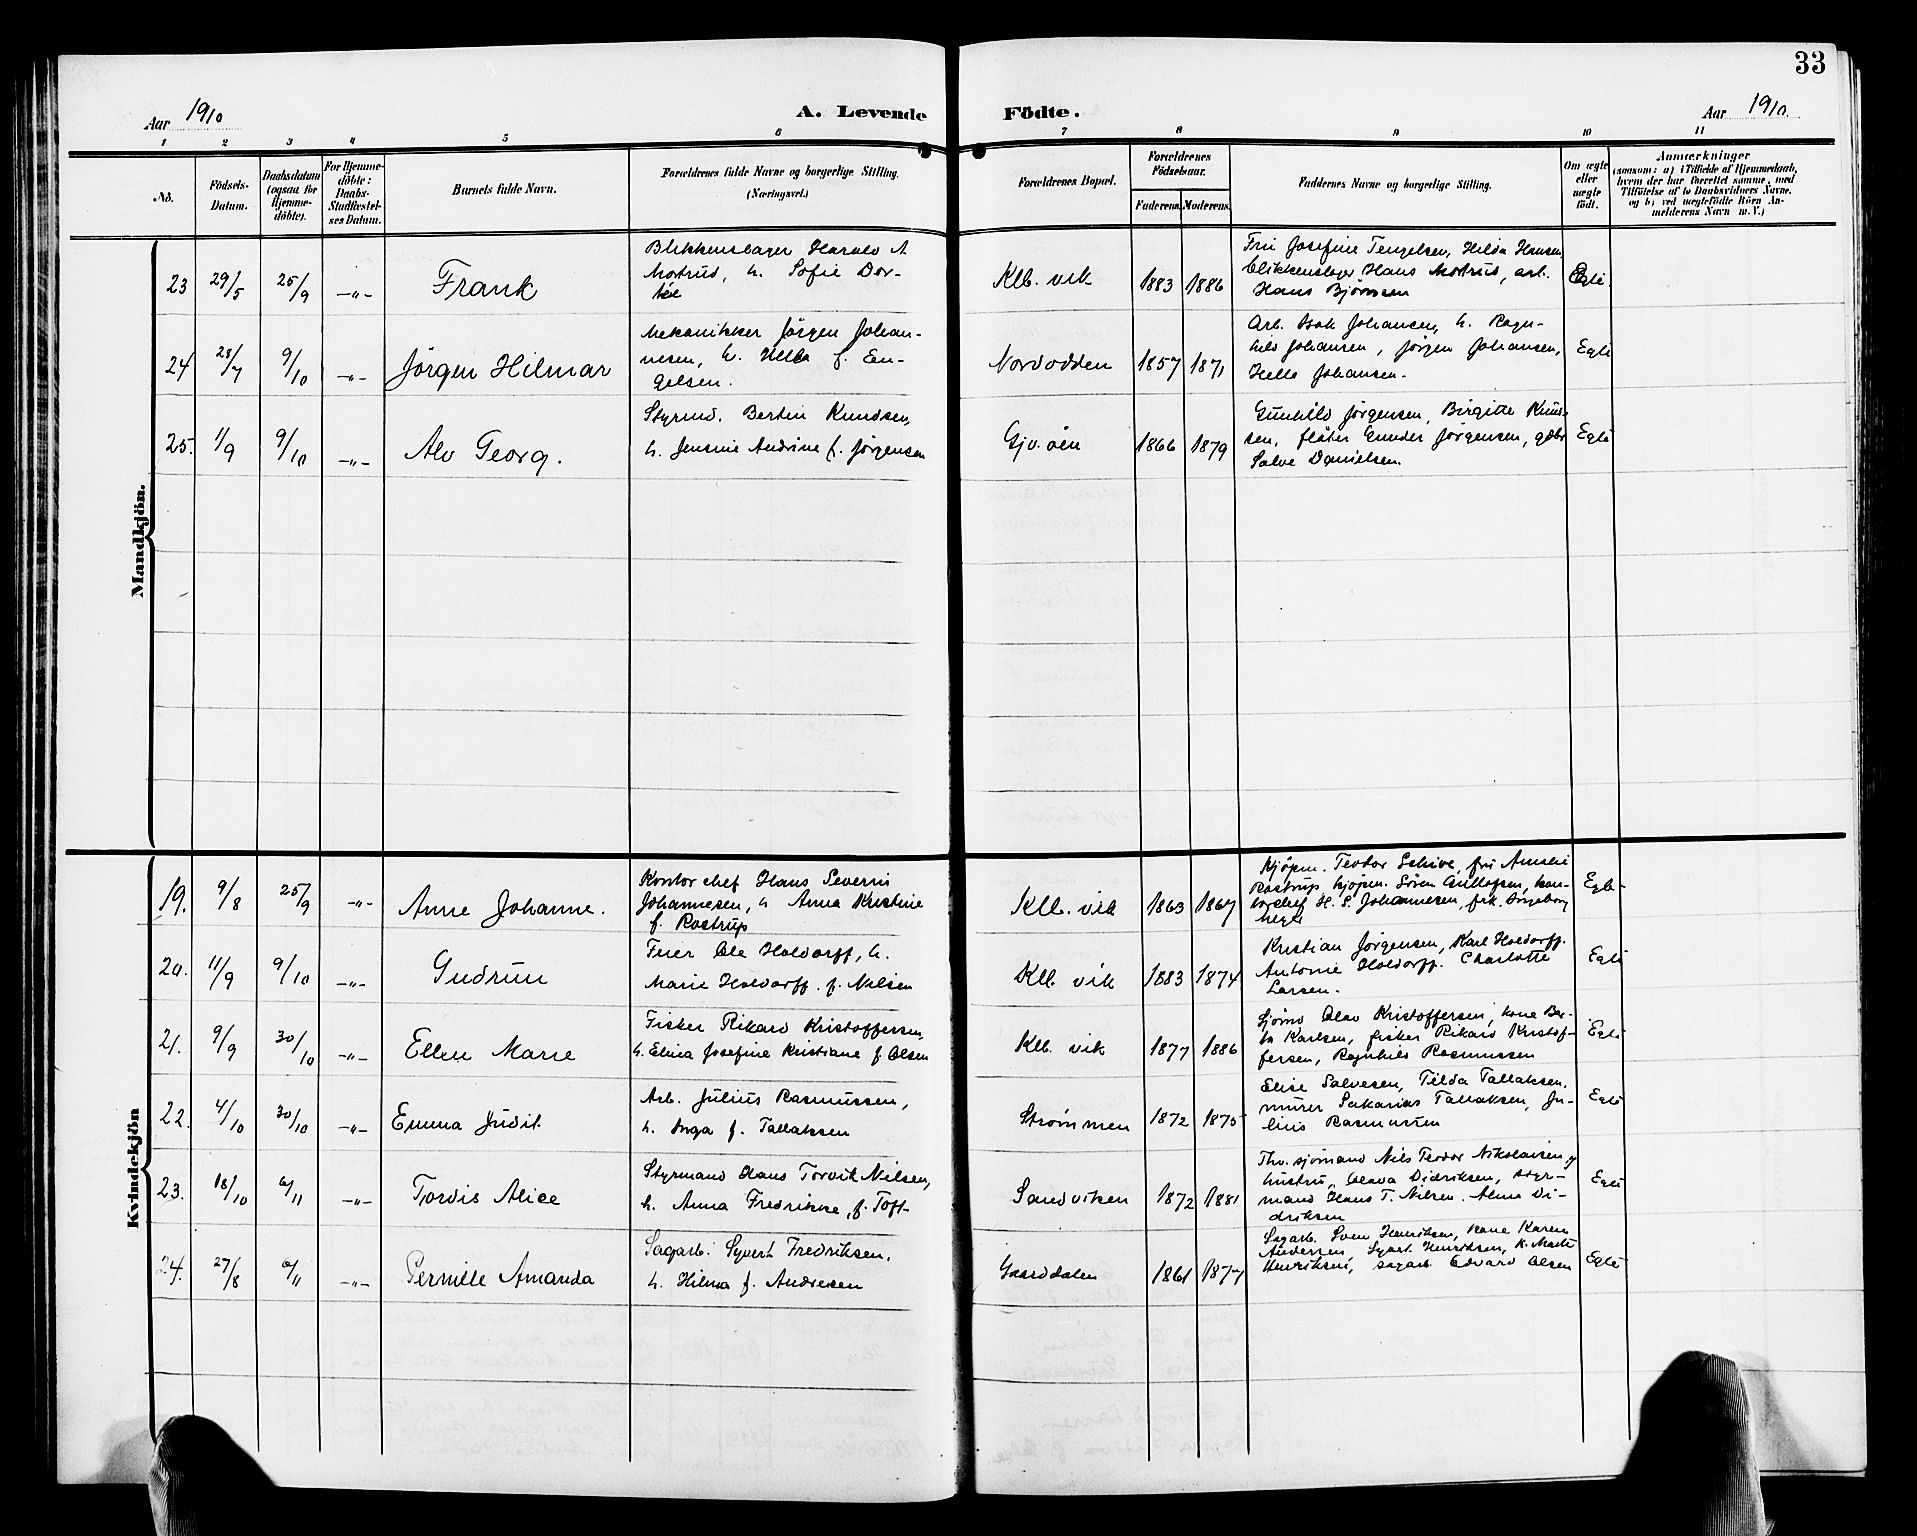 33
Aar 1910
A. Levende
Födte.
Aar 1910.
1 2 3 4 5 6 7 8 9 10 11
No.
Födsels-
Datum.
Daabsdatum
(ogsaa for
Hjemme-
döbte).
For Hjemme-
döbte:
Daabs-
Stadfæstel-
ses Datum.
Barnets fulde Navn.
Forældrenes fulde Navne og borgerlige Stilling.
(Næringsvei.)
Forældrenes Bopæl.
Forældrenes
Födselsaar.
Faderens. Moderens.
Faddernes Navne og borgerlige Stilling.
Om ægte
eller
uægte
födt.
Anmærkninger
(saasom: a) i Tilfælde af Hjemmedaab,
hvem der har forrettet samme, med
Tilföielse af to Daabsvidners Navne.
og b) ved uægtefödte Börn An-
melderens Navn m. V.)
Mandkjön.
23 29/5 25/9 -"- Frank
Blikkenslager Harald A
Motrud, h. Sofie Dor-
thé
Klb. vik 1883 1886
Fru Josefine Tengelsen, Hilda Hansen
blikkenslager Hans Motrud, arb.
Hans Bjørnsen
Egte.
24 28/7 9/10 -"- Jörgen Hilmar
Mekanikker Jörgen Johan-
nesen, h. Helle f. En-
gelsen.
Nordodden 1857 1871
Arb. Isak Johansen, h. Ragn-
hild Johansen, Jörgen Johansen,
Helle Johansen.
Egte
25. 1/9 9/10 -"- Alv Georg.
Styrmd. Bertin Knudsen,
h. Jensine Andrine f. Jörgensen
Gjv. öen 1866 1879
Gunhild Jörgensen, Birgitte Knud-
sen, fløter Gunder Jörgensen, gdbr
Salve Danielsen.
Egte
Kvindekjön
19. 9/8 25/9 -"- Anne Johanne.
Kontorchef Hans Severin
Johannesen, h Anna Kristine
f. Rostrup
Klb. vik 1863 1867
Kjøpm. Teodor Schive, fru Amalie
Rostrup kjøpm. Søren Gullofsen, kon-
torchef H. S. Johannesen, frk. Ingeborg
Meyer
Egte
20. 11/9 9/10 -"- Gudrun
Feier Ole Holdorff, h.
Marie Holdorff. f. Nilsen
Klb. vik 1883 1874
Kristian Jørgensen, Karl Holdorff.
Antonie Holdorff. Charlotte
Larsen.
Egte
21. 9/9 30/10 -"- Ellen Marie
Fisker Rikard Kristoffersen,
h. Elina Josefine Kristiane f Olsen
Klb. vik 1877 1886
Sjömd Olav Kristoffersen, kone Ber-
ta Karlsen, fisker Rikard Kristof-
fersen, Ragnhild Rasmussen
Egte
22. 4/10 30/10 -"- Emma Judit.
Arb. Julius Rasmussen,
h. Inga f. Tallaksen
Strømmen 1872 1875
Elise Salvesen, Tilda Tallaksen.
murer Sakarias Tallaksen, Ju-
lius Rasmussen
Egte
23. 18/10 6/11 -"- Tordis Alice
Styrmand Hans Torvit Nilsen,
h. Anna Fredrikke, f. Toft-
Sandviken 1872 1881
Thv. sjömand Nils Teodor Nikolaisen og
hustru, Olava Didriksen, styr-
mand Hans T. Nilsen. Alma Di-
driksen
Egte
24. 27/8 6/11 -"- Pernille Amanda
Sagarb. Syvert Fredriksen.
h. Hilma f. Andresen
Gaarddalen 1861 1877
Sagarb. Sven Henriksen, kone Karen
Andersen, Syvert Henriksen, k. Marte
Henriksen, sagarb Edvard Olsen
Egte